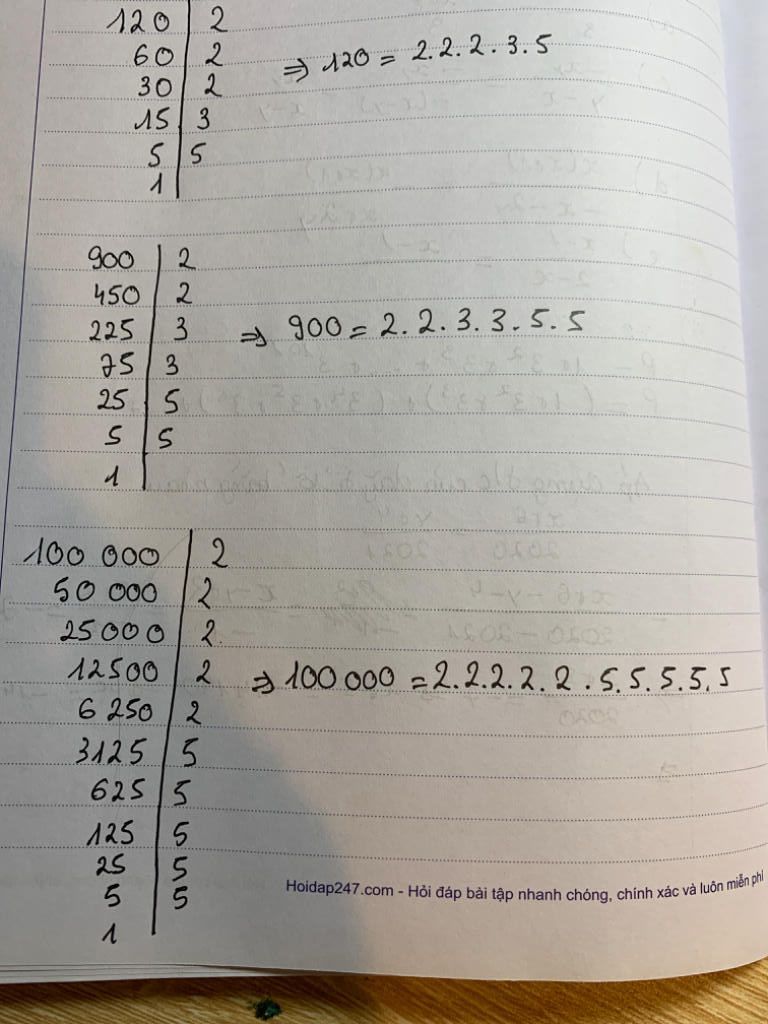 120 | 2
60 | 2 ⇒ 120 = 2.2.2.3.5
30 | 2
15 | 3
5 | 5
1 |
900 | 2
450 | 2
225 | 3 ⇒ 900 = 2.2.3.3.5.5
75 | 3
25 | 5
5 | 5
1 |
100 000 | 2
50 000 | 2
25000 | 2
12500 | 2 ⇒ 100 000 = 2.2.2.2.2.5.5.5.5.5
6 250 | 2
3125 | 5
625 | 5
125 | 5
25 | 5
5 | 5
1 |
Hoidap247.com - Hỏi đáp bài tập nhanh chóng, chính xác và luôn miễn phí